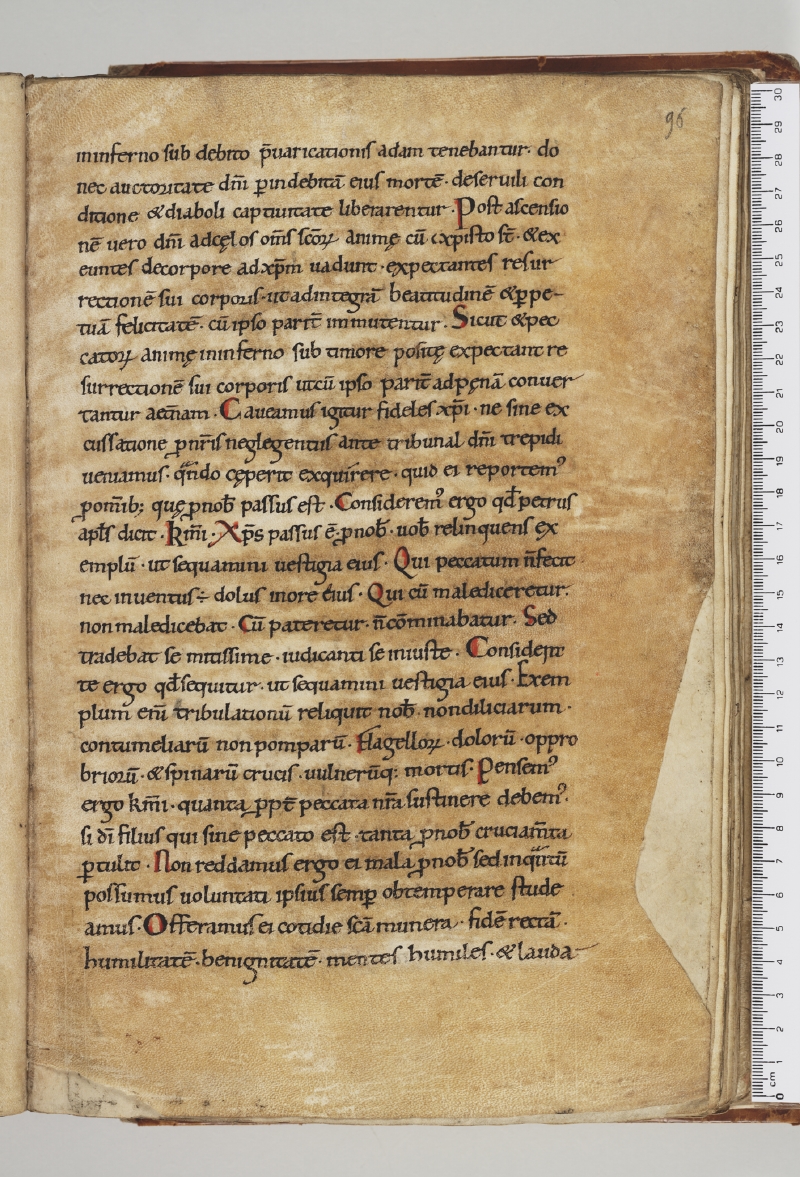 96
ininferno sub debito p̄uaricationis adam tenebantur. do
nec auctoritate dn̄i ꝑindebitā eius mortē. deseruili con
ditione &diaboli captiuitate liberarentur. Post ascensio
nē uero dn̄i adcęlos om̄s sc̄oꝝ animę cū xp̄isto st̄. &ex
euntes decorpore adxp̄m uadunt. expectantes resur
rectionē sui corporis. utadintegrā beatitudinē &ꝑpe-
tuā felicitatē. cū ipso parit̄ immutentur. Sicut &pec
catoꝝ animę ininferno sub timore positę expectant re
surrectionē sui corporis utcū ipso parit̄ adpęnā conuer
tantur aet̄nam. Caueamus igitur fideles xp̄i. ne sine ex
cussatione ꝑ nr̄is neglegentiis ante tribunal dn̄i trepidi
ueniamus. qn̄do cęperit exquirere. quid ei reportem᾽
ꝓ om̄ib; quę ꝓ nob̄ passus est. Considerem᾽ ergo qd̄ petrus
apl̄s dicit. kr̄mi. Xp̄s passus ē ꝓ nob̄. uob̄ relinquens ex
emplū. ut sequamini uestigia eius. Qui peccatum n̄ fecit
nec inuentus ÷ dolus inore eius. Qui cū malediceretur.
non maledicebat. Cū pateretur. n̄ cōminabatur. Sed
tradebat se mitissime. iudicanti se iniuste. Considerate
te ergo qd̄ sequitur. ut sequamini uestigia eius. Exem
plum eni̅ tribulationū reliquit nob̄. nondiliciarum.
contumeliarū non pomparū. Flagelloꝝ. dolorū. oppro
briorū. &spinarū crucis. uulnerūq: mortis. Pensem᾽
ergo kr̄mi. quanta ꝓpt̄ peccata nr̄a sustinere debem᾽.
si dī filius qui sine peccato est. tanta ꝓ nob̄ cruciam̄ta
ꝑtulit. Non reddamus ergo ei mala ꝓ nob̄ sed inqn̄tū
possumus uoluntati ipsius semꝑ obtemperare stude
amus. Offeramus ei cotidie sc̄a munera. fidē rectā.
humilitatē. benignitatē. mentes humiles. &lauda
30
29
28
27
26
25
24
23
22
21
20
19
18
17
16
15
14
13
12
11
10
9
8
7
6
5
4
3
2
1
cm
0